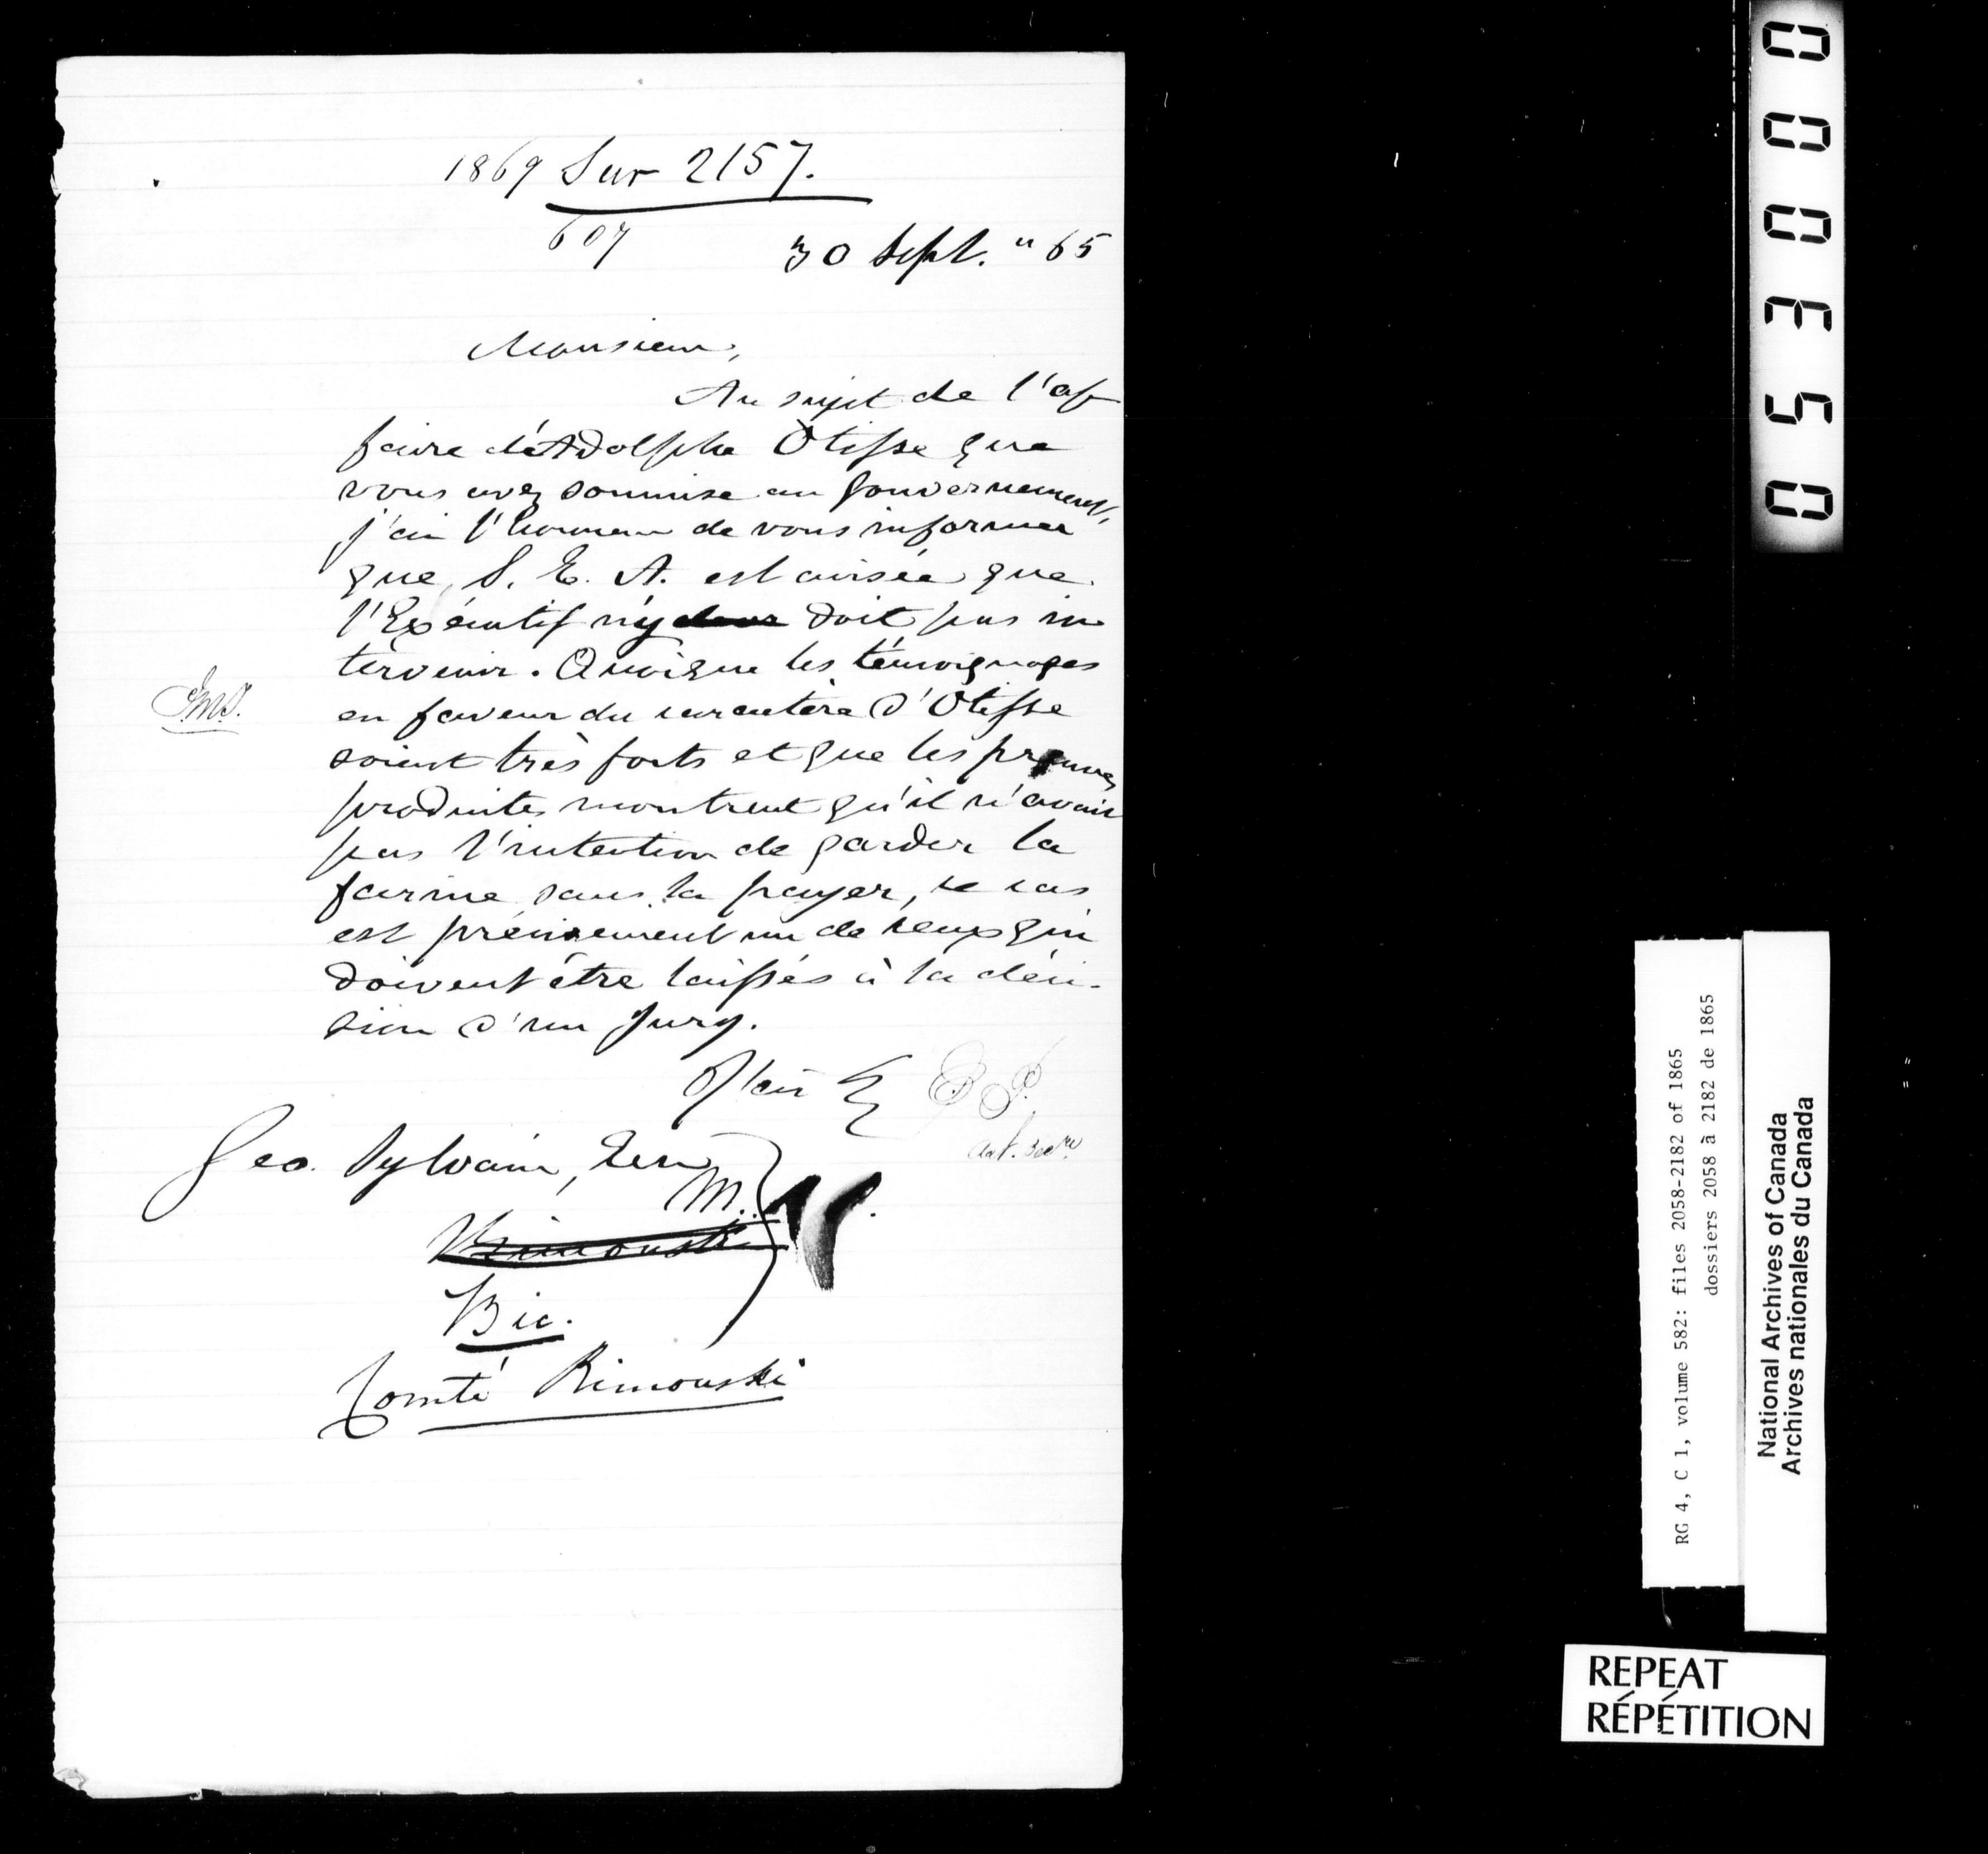 1869 Sur 2157.
607
30 Sept. " 65
Monsieur,
Au sujet de l'af
faire d'Adolphe Otisse que
vous avez soumise au Gouvernement,
j'ai l'honneur de vous informer
que S. E. A. est avisée que
l'Exécutif n'y doit pas in
tervenir. Quoique les témoignages
en faveur du caractère d'Otisse
soient très forts et que les preuves
produites montrent qu'il n'avait
pas l'intention de garder la
farine sans la payer, ce cas
est précisément un de ceux qui
doivent être laissés à la déci-
sion d'un Jury.
J'ai
Ast. Secre
Geo. Sylvain, Ecr
M.
Rimouski
Bic.
Comté Rimouski
00035 0
RG 4, C 1, volume 582: files 2058-2182 of 1865
dossiers 2058 à 2182 de 1865
National Archives of Canada
Archives nationales du Canada
REPEAT
RÉPÉTITION